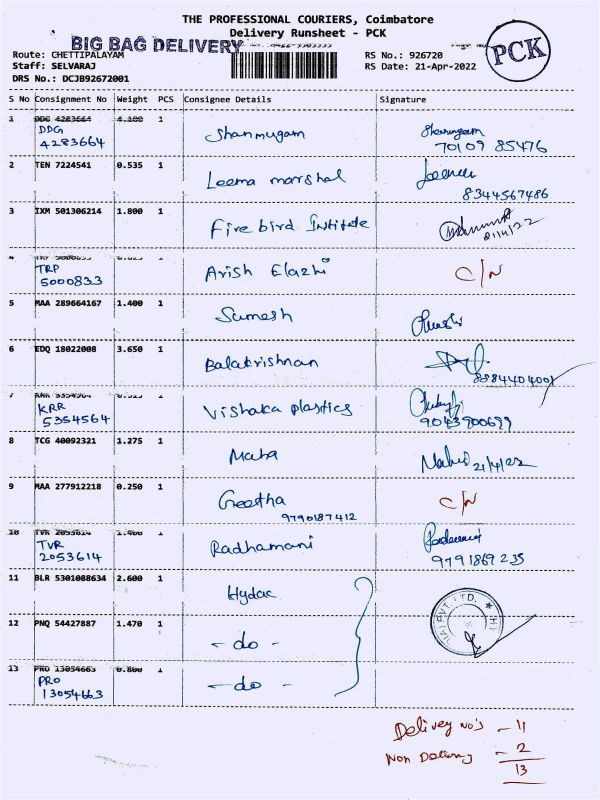 THE PROFESSIONAL COURIERS, Coimbatore
Delivery Runsheet - PCK
BIG BAG DELIVERY
PCK
Route: CHETTIPALAYAM
RS No.: 926720
Staff: SELVARAJ
RS Date: 21-Apr-2022
DRS No.: DCJB92672001
S No Consignment No Weight PCS Consignee Details Signature
1 DDG 4283664 4.100 1
DDG
4283664
Shanmugam
Shanmugam
70109 85476
2 TEN 7224541 0.535 1
Leema marshal
8344567486
3 IXM 501306214 1.800 1
Fire bird Intitute
21/4/22
4 TRP 5000833 1
TRP
5000833
Arish Elazhi
C/N
5 MAA 289664167 1.400 1
Sumesh
6 EDQ 18022008 3.650 1
Balakrishnan
8884404001
7 KRR 5354564 1
KRR
5354564
Vishaka plastics
9043900699
8 TCG 40092321 1.275 1
Maha
21/4/22
9 MAA 277912218 0.250 1
Geetha
9790187412
C/N
10 TVR 2053614 1.400 1
TVR
2053614
Radhamani
9791869235
11 BLR 5301088634 2.600 1
Hydac
12 PNQ 54427887 1.470 1
- do -
13 PRO 13054663 0.800 1
PRO
13054663
- do -
Delivey No's - 11
Non Delivery - 2
13